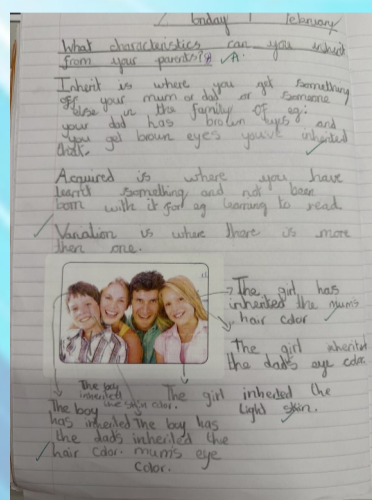 Monday 1 February
What characteristics can you inherit
from your parents? A.
Inherit is where you get something
off your mum or dad or someone
else in the family Of eg:
your dad has brown eyes and
you get brown eyes youve inherited
that.
Acquired is where you have
learnt something and not been
born with it for eg learning to read
Variation is where there is more
then one.
The girl has
inherited the mums
hair color.
The girl inherited
the dad's eye color.
The girl inherited the
light skin.
The boy
inherited
the skin color.
The boy
has inherited
the dad's
hair color.
The boy has
inherited the
mum's eye
color.